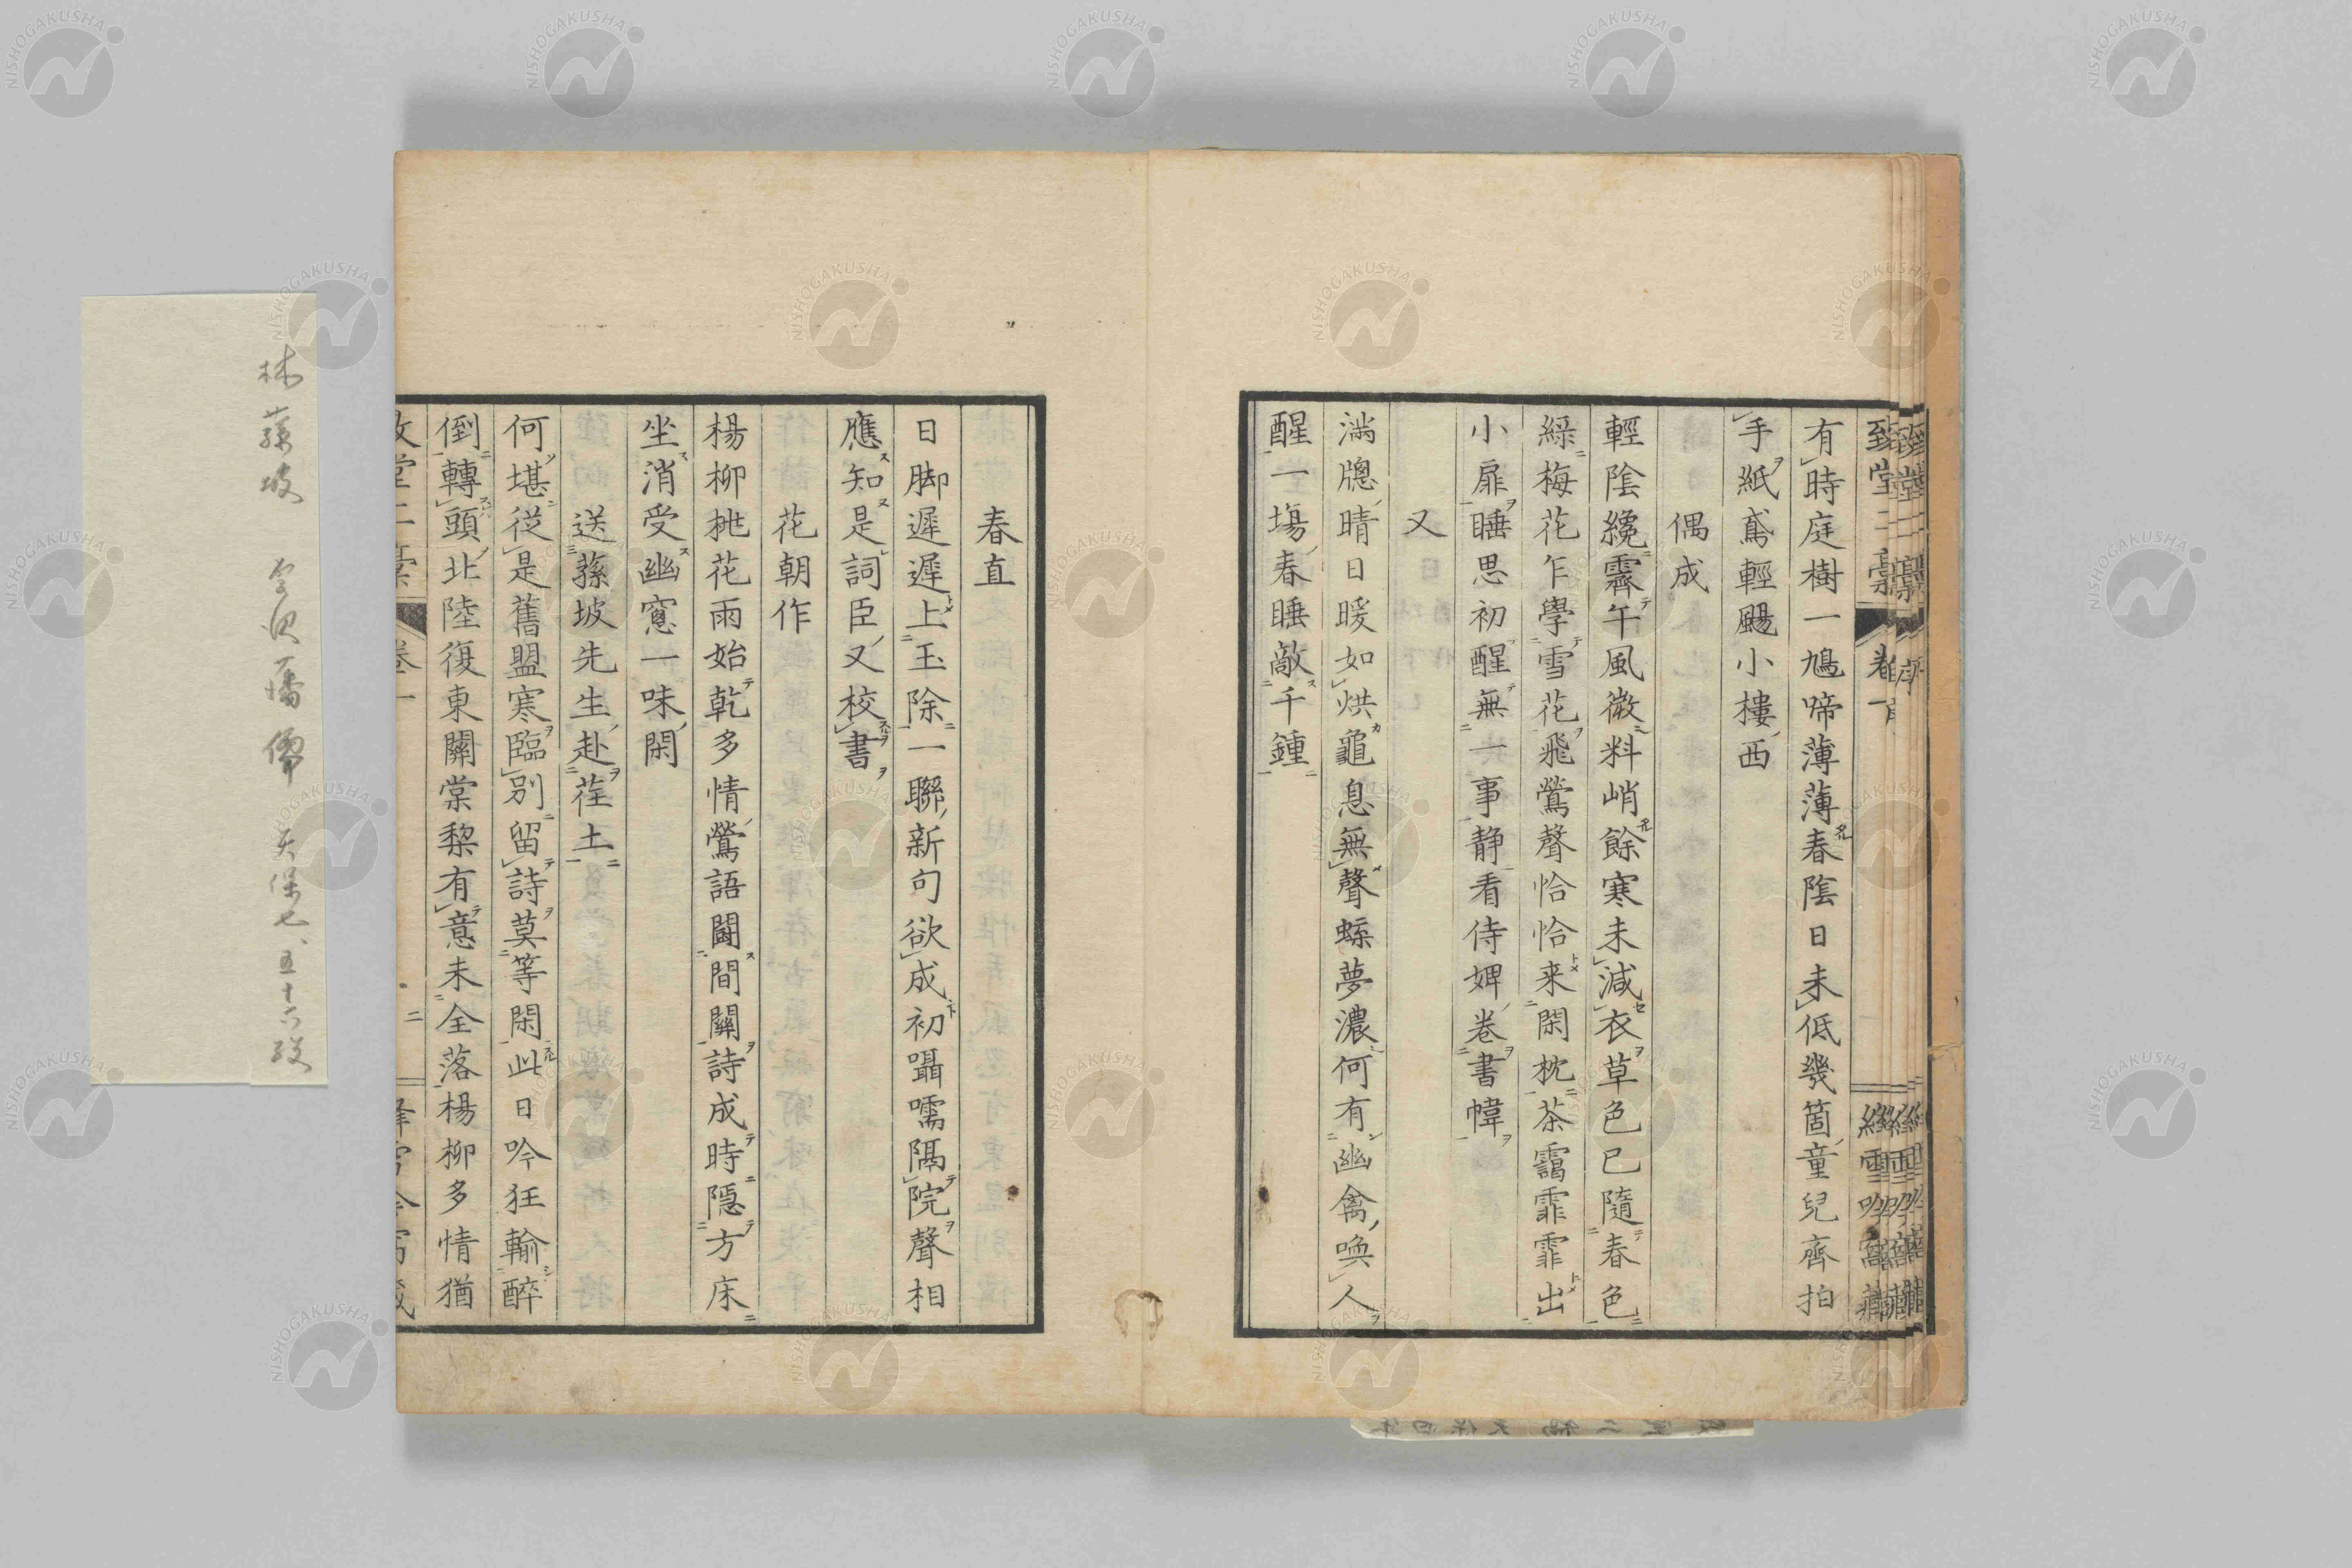 有時庭樹一鳩啼薄薄春陰日未低幾箇童兒齊拍
手紙鳶輕颺小樓西
偶成
輕陰纔霽午風微料峭餘寒未減衣草色已隨春色
綠梅花乍學雪花飛鶯聲恰恰来閑枕茶靄霏霏出
小扉睡思初醒無一事静看侍婢卷書幃
又
滿牕晴日暖如烘龜息無聲蝶夢濃何有幽禽喚人
醒一場春睡敵千鍾
春直
日脚遲遲上玉除一聯新句欲成初囁嚅隔院聲相
應知是詞臣又校書
花朝作
楊柳桃花雨始乾多情鶯語鬪間關詩成時隱方床
坐消受幽窓一味閑
送蓀坡先生赴荏土
何堪從是舊盟寒臨別留詩莫等閑此日吟狂輸醉
倒轉頭北陸復東關棠棃有意未全落楊柳多情猶
林蓀坡 金沢藩儒 天保七、五十六歿
NISHOGAKUSHA